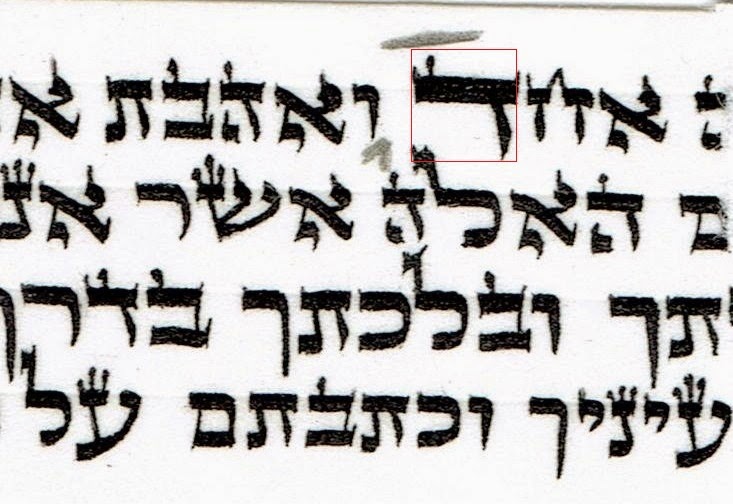 ה אחד ואהבת א
ם האלה אשר אנ
תך ובלכתך בדרך
עיניך וכתבתם על